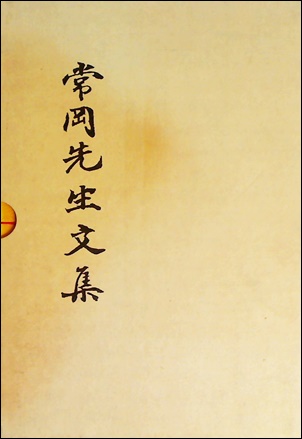 常岡先生文集